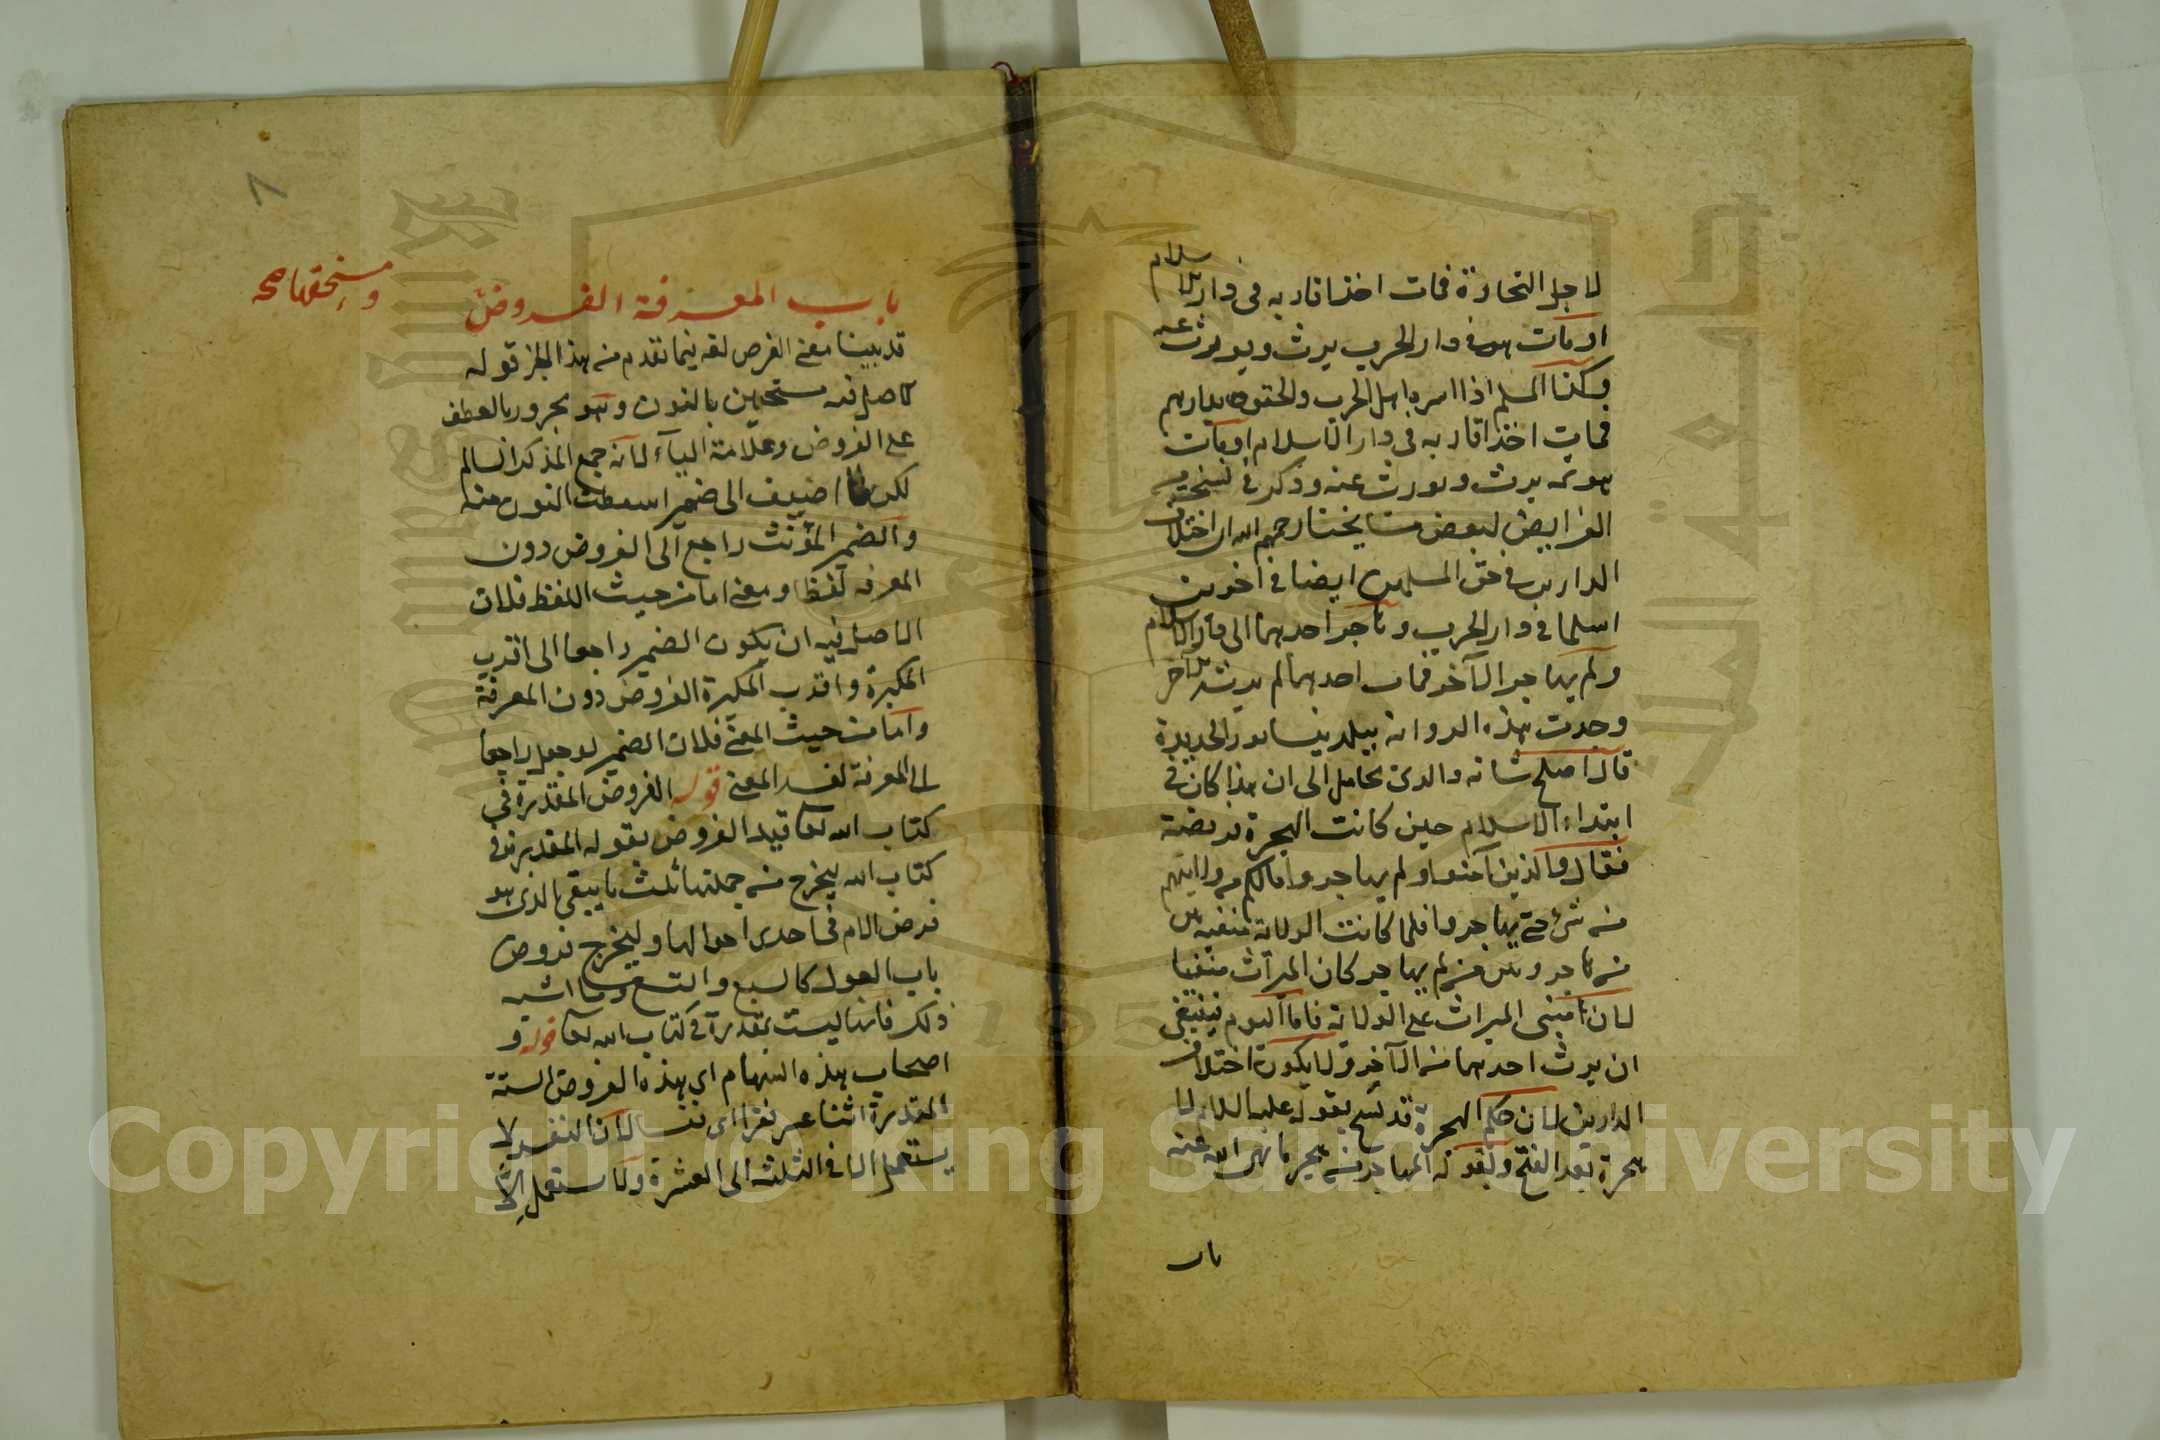 لاجل التجارة فمات اخذ اقاربه فى دار الاسلام
او مات هو فى دار الحرب يرث ويورث عنه
وكذا المسلم اذا اسره اهل الحرب والحقوه بدارهم
فمات اخذ اقاربه فى دار الاسلام او مات
هو ثمه يرث ويورث عنه وذكر فى نسخة من
الفرايض لبعض مشايخنا رحمهم الله ان اختلاف
الدارين فى حق المسلمين ايضا فى اخوين
اسلما فى دار الحرب وهاجر احدهما الى دار الاسلام
ولم يهاجر الآخر فمات احدهما لم يرثه الآخر
وجدت هذه الرواية
قال اصلح شانه والذى تحامل الى ان هذا كان فى
ابتداء الاسلام حين كانت الهجرة فريضة
فقال والذين آمنوا ولم يهاجروا ما لكم من ولايتهم
من شئ حتى يهاجروا فلما كانت الولاية منفية بين
من هاجر وبين من لم يهاجر كان الميراث منفيا
لان مبنى الميراث على الولاية فاما اليوم فينبغى
ان يرث احدهما من الآخر ولا يكون اختلاف
الدارين لان حكم الهجرة قد نسخ بقوله عليه السلام لا
هجرة بعد الفتح وبقوله المهاجر من هجر ما نهى الله عنه
باب
٨
باب المعرفة الفروض
ومستحقيها صح
قد بينا معنى الفرض لغة فيما تقدم من هذا الجزء قوله
كاصل فيه مستحقين بالنون وهو مجرور بالعطف
على الفروض وعلامة الياء لانه جمع المذكر السالم
لكن لما اضيف الى ضمير اسقطت النون منه
والضمير المؤنث راجع الى الفروض دون
المعرفة لفظا ومعنى اما من حيث اللفظ فلان
الاصل فيه ان يكون الضمير راجعا الى اقرب
المكبرة واقرب المكبرة الفروض دون المعرفة
واما من حيث المعنى فلان الضمير لو جعل راجعا
الى المعرفة لفسد المعنى قوله الفروض المقدرة فى
كتاب الله تعا قيد الفروض بقوله المقدرة فى
كتاب الله ليخرج من جملتها ثلث ما يبقى الذى هو
فرض الام فى احدى احوالها وليخرج فروض
باب العول كالسبع والتسع وما اشبه
ذلك فانها ليست بمقدرة فى كتاب الله تعا قوله و
اصحاب هذه السهام اى هذه الفروض الستة
المقدرة اثنا عشر نفرا اى نفسا لان النفر لا
يستعمل الا فى الثلثة الى العشرة ولا يستعمل الا
Copyright © King Saud University